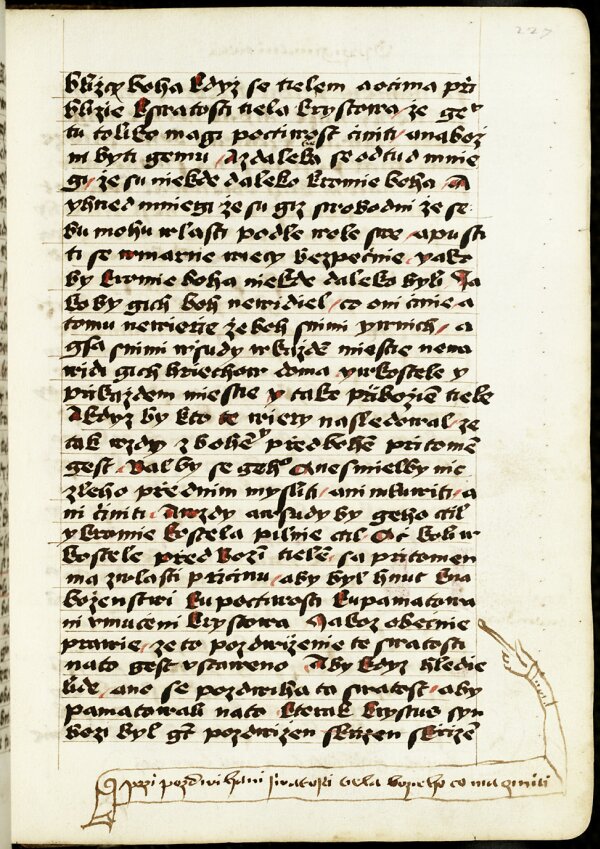 227
bližeẏ boha kdyz se tielem a ocima při
bližie kswatosti tiela krystowa ze ge
tu toliko magi poctiwost činiti a naboz
ni byti gemu A zdaleka se odtud mnie
gi ze su niekde daleko kromie boha A
yhned mniegi ze su giz swobodni ze se
bu mohu wlasti podle wole swe a pusti
ti se wmarne wiecy bezpečnie yako
by kromie boha niekde daleko byli Ja
ko by gich boh newidiel co oni cinie a
tomu newierzie ze boh snimi ywnich a
gsa snimi wsudy wkazdē miestie newa
widi gich hriechow doma y wkostele y
przikazdem miestie y take przibozien tiele
A kdyz by kto te wiery nasledowal ze
tak wzdy z bohē przed bohē pritomē
gest Bal by se geho A nesmielby nic
zleho przednim mysliti ani mluwiti a
ni činiti A wzdy a wsudy by geho ctil
y kromie kostela pilnie ctil Ac koli w
kostele przed bozi tielē sa pritomen
ma zwlasti przicinu aby byl hnut kna
bozenstwi ku poctiwosti ku pamatowa
ni vmuceni krystowa Jakoz obecnie
prawie ze to pozdwizenie te swatosti
nato gest vstaweno Aby kdyz hledie
lide ano se pozdwiha ta swatost aby
pamatowali nato kterak krystus syn
bozi byl gt pozdwizen skrizen skrizē
Przi pozdwihani swatosti tiela bozeho co ma ziniti